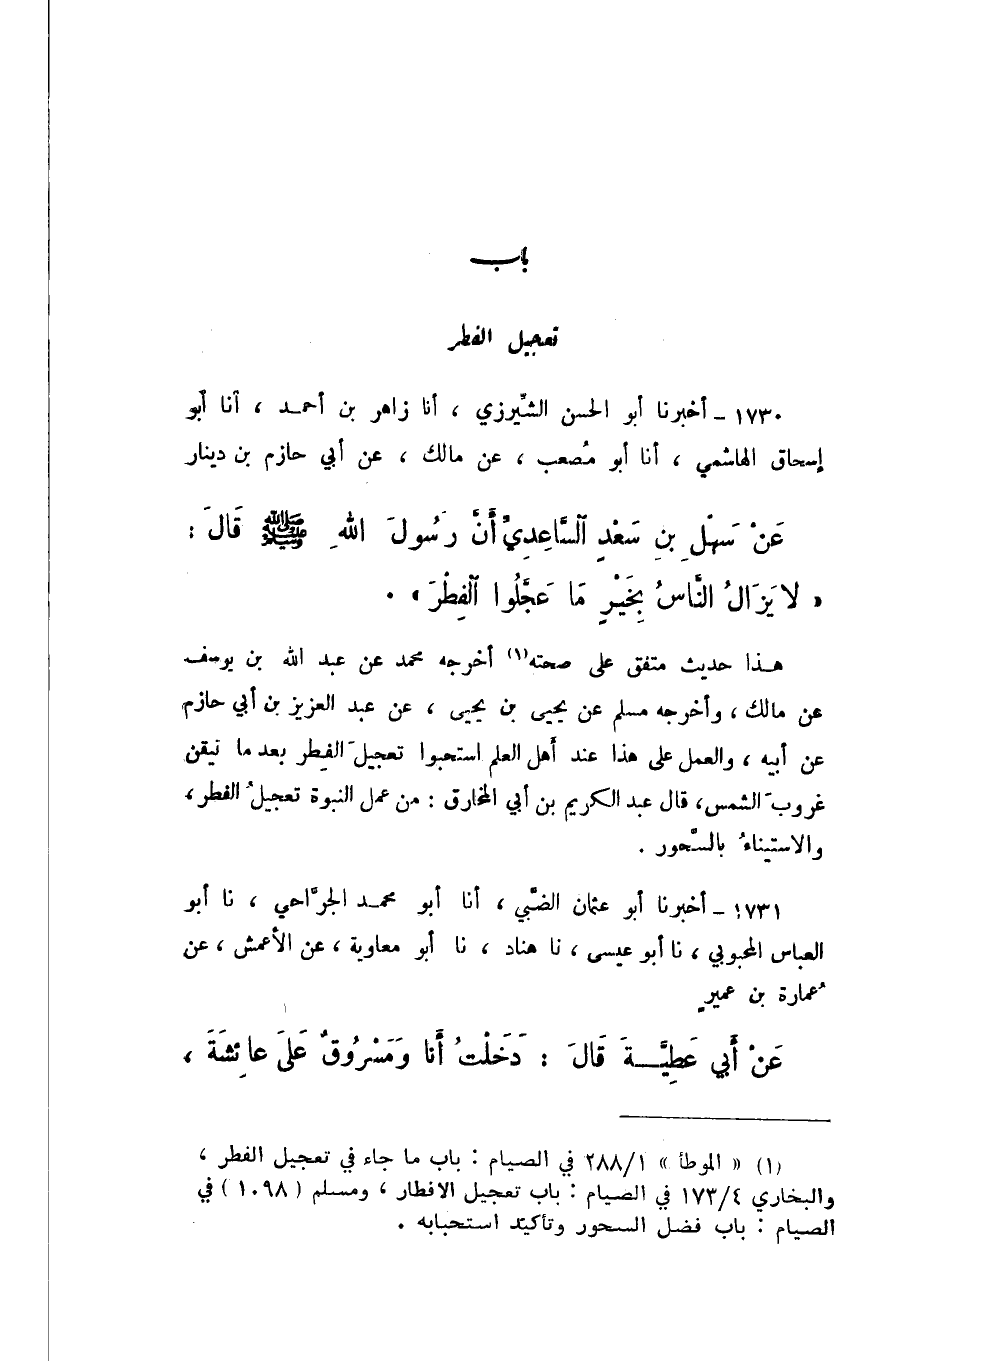 باب
تعجيل الفطر
١٧٣٠ ـ أخبرنا أبو الحسن الشِّيرزي ، أنا زاهر بن أحمد ، أنا أبو
إسحاق الهاشمي ، أنا أبو مُصعب ، عن مالك ، عن أبي حازم بن دينار
عَنْ سَهْلِ بنِ سَعْدٍ ٱلسَّاعِدِيِّ أَنَّ رَسُولَ اللهِ ﷺ قَالَ :
« لا يَزَالُ النَّاسُ بِخَيْرٍ مَا عَجَّلُوا ٱلْفِطْرَ » .
هذا حديث متفق على صحته(١) أخرجه محمد عن عبد الله بن يوسف
عن مالك ، وأخرجه مسلم عن يحيى بن يحيى ، عن عبد العزيز بن أبي حازم
عن أبيه ، والعمل على هذا عند أهل العلم استحبوا تعجيلَ الفيطر بعد ما تيقن
غروبَ الشمس، قال عبد الكريم بن أبي المخارق : من عمل النبوة تعجيلُ الفطر،
والاستيناءُ بالسَّحور .
١٧٣١ ـ أخبرنا أبو عثمان الضَّبي ، أنا أبو محمد الجرَّاحي ، نا أبو
العباس المحبوبي ، نا أبو عيسى ، نا هناد ، نا أبو معاوية ، عن الأعمش ، عن
عُمارة بن عميرٍ
عَنْ أَبي عَطِيَّةَ قَالَ : دَخَلْتُ أَنا وَمَسْرُوقٌ عَلىَ عائِشَةَ ،
(١) « الموطأ » ٢٨٨/١ في الصيام : باب ما جاء في تعجيل الفطر ،
والبخاري ١٧٣/٤ في الصيام : باب تعجيل الافطار ، ومسلم ( ١٠٩٨ ) في
الصيام : باب فضل السحور وتأكيد استحبابه .